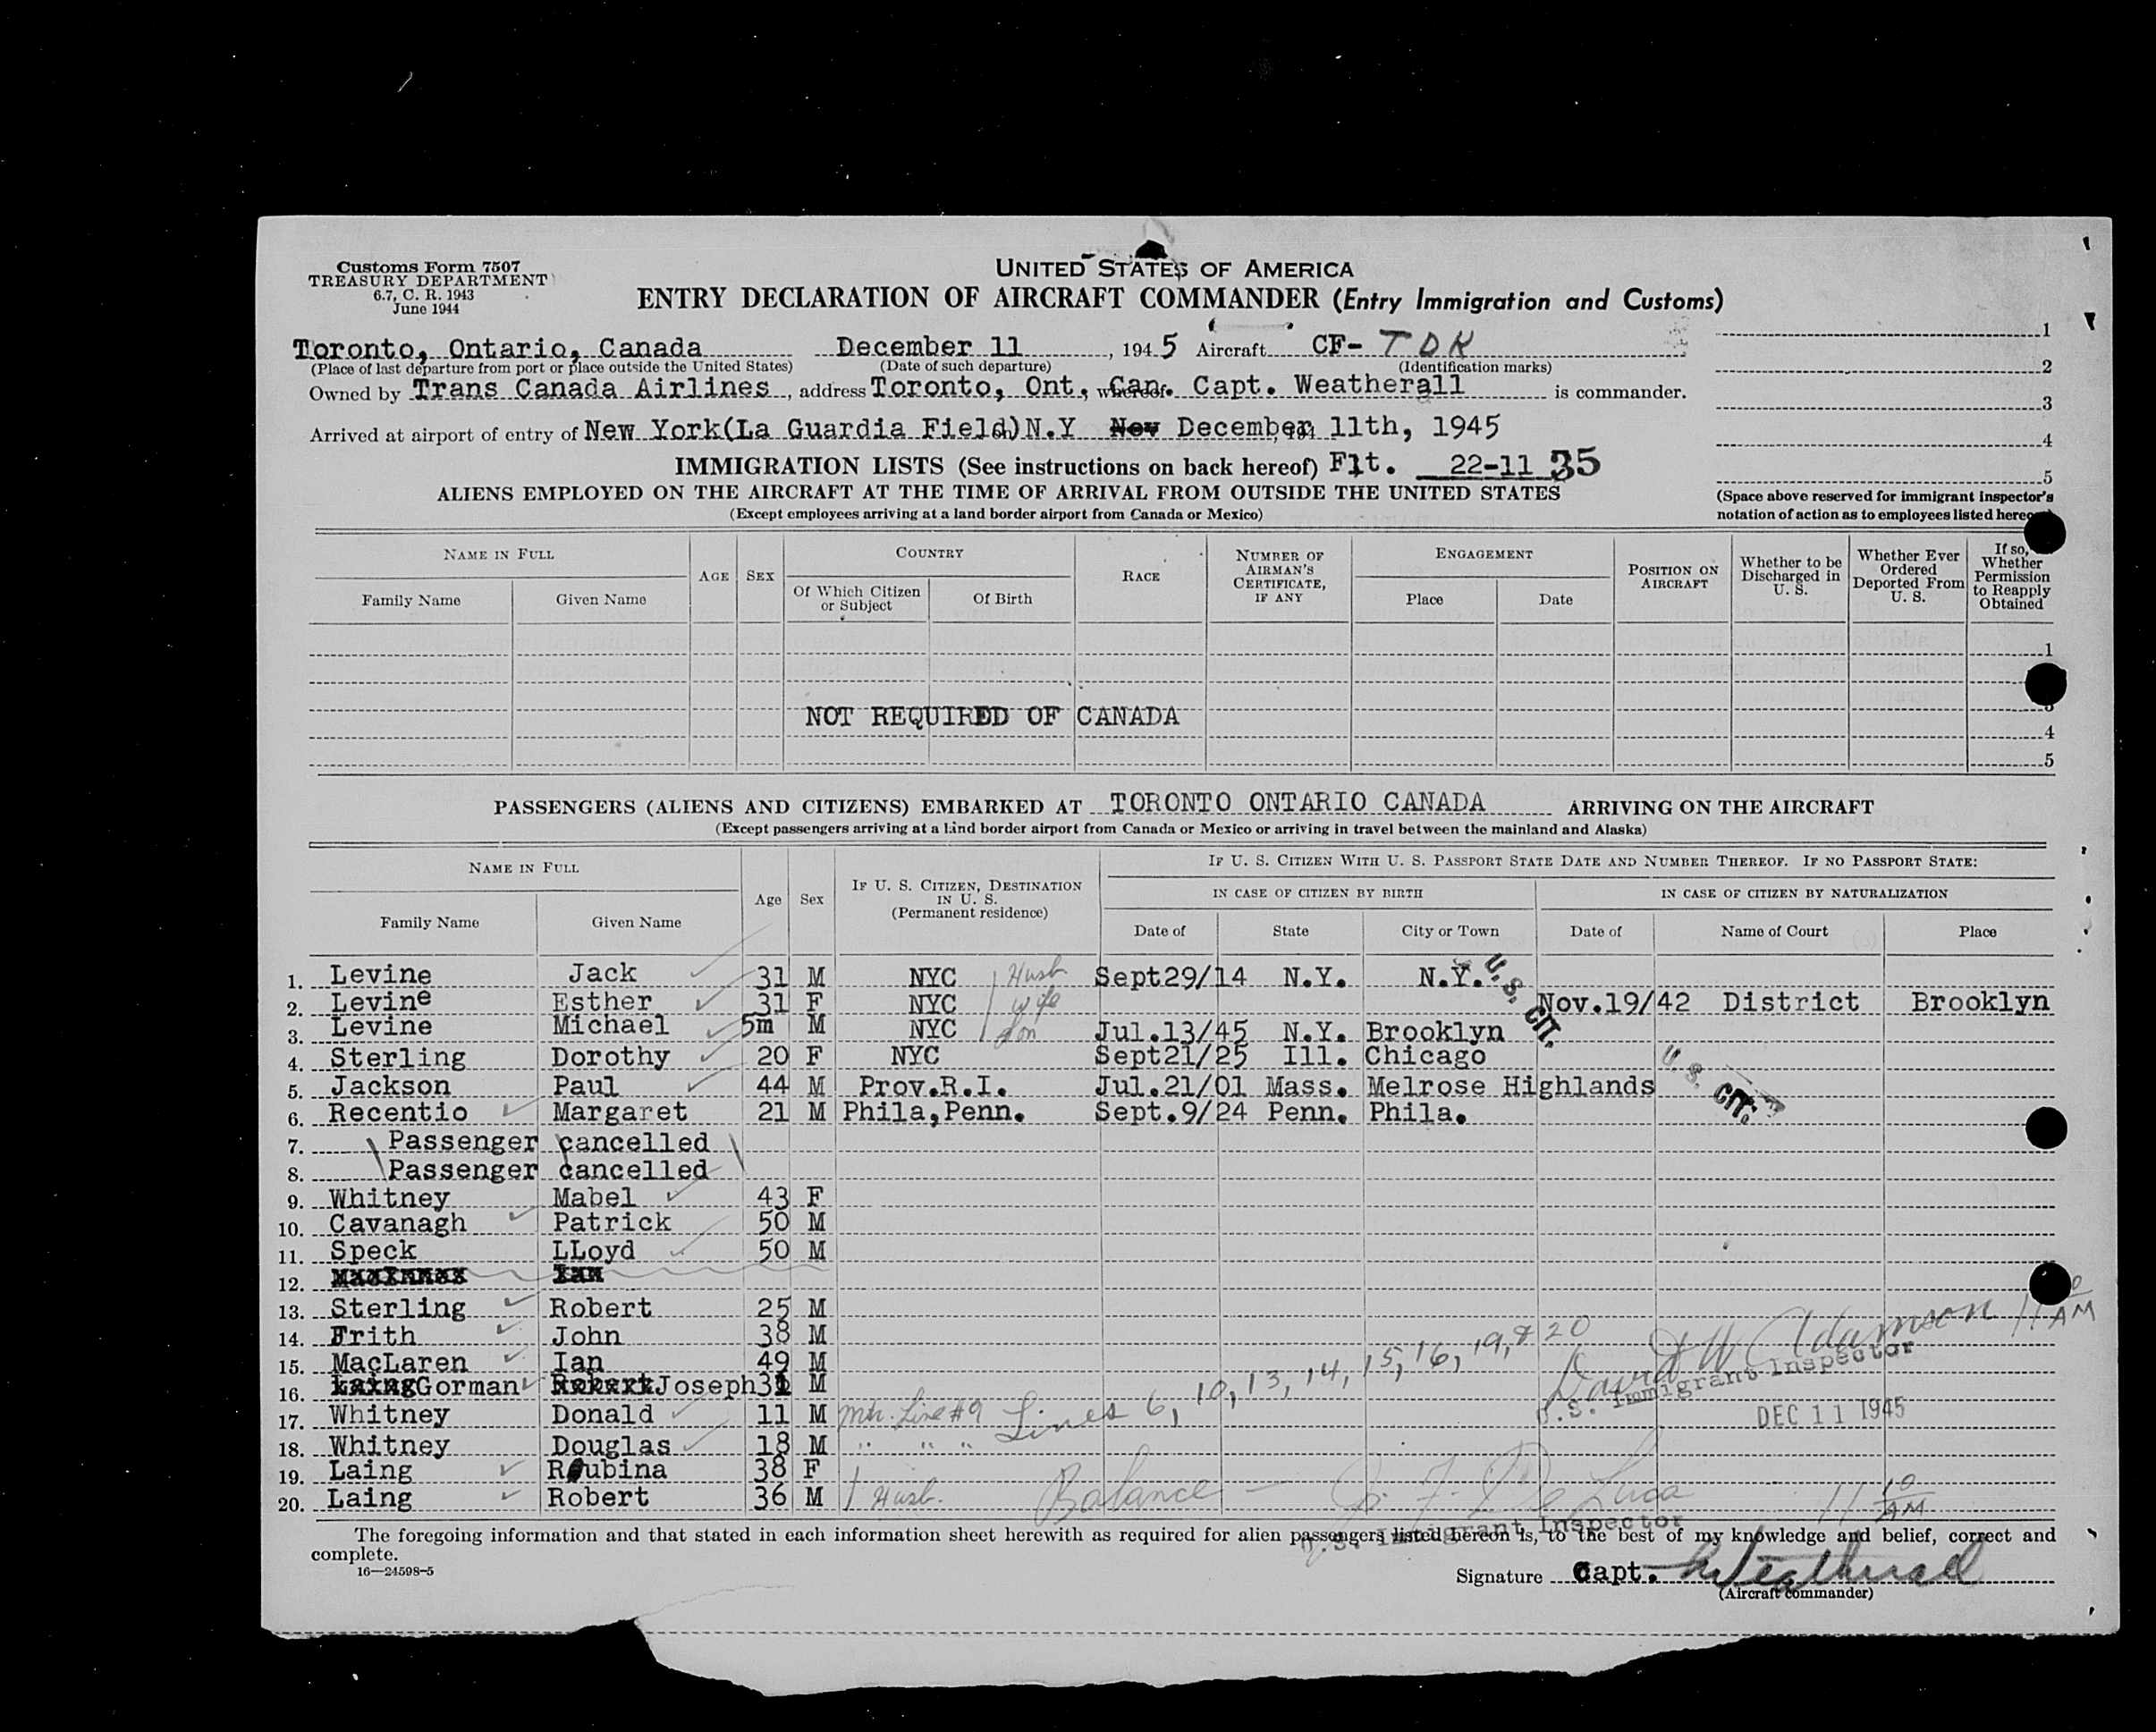 Customs Form 7507
TREASURY DEPARTMENT
6.7, C. R. 1943
June 1944
UNITED STATES OF AMERICA
ENTRY DECLARATION OF AIRCRAFT COMMANDER (Entry Immigration and Customs)
Toronto, Ontario, Canada December 11, 1945 Aircraft CF- TDK
(Place of last departure from port or place outside the United States) (Date of such departure) (Identification marks)
Owned by Trans Canada Airlines, address Toronto, Ont, Can. whereof Capt. Weatherall is commander.
Arrived at airport of entry of New York(La Guardia Field)N.Y Nov December 11th, 1945
1
2
3
4
5
(Space above reserved for immigrant inspector's notation of action as to employees listed hereon)
IMMIGRATION LISTS (See instructions on back hereof) Flt. 22-11 35
ALIENS EMPLOYED ON THE AIRCRAFT AT THE TIME OF ARRIVAL FROM OUTSIDE THE UNITED STATES
(Except employees arriving at a land border airport from Canada or Mexico)
NAME IN FULL
Family Name Given Name
AGE SEX
COUNTRY
Of Which Citizen or Subject Of Birth
RACE
NUMBER OF AIRMAN'S CERTIFICATE, IF ANY
ENGAGEMENT
Place Date
POSITION ON AIRCRAFT
Whether to be Discharged in U. S.
Whether Ever Ordered Deported From U. S.
If so, Whether Permission to Reapply Obtained
1
NOT REQUIRED OF CANADA
3
4
5
PASSENGERS (ALIENS AND CITIZENS) EMBARKED AT TORONTO ONTARIO CANADA ARRIVING ON THE AIRCRAFT
(Except passengers arriving at a land border airport from Canada or Mexico or arriving in travel between the mainland and Alaska)
NAME IN FULL
Family Name Given Name
Age Sex
IF U. S. CITIZEN, DESTINATION IN U. S.
(Permanent residence)
IF U. S. CITIZEN WITH U. S. PASSPORT STATE DATE AND NUMBER THEREOF. IF NO PASSPORT STATE:
IN CASE OF CITIZEN BY BIRTH IN CASE OF CITIZEN BY NATURALIZATION
Date of State City or Town Date of Name of Court Place
1. Levine Jack 31 M NYC Husb Sept29/14 N.Y. N.Y.
2. Levine Esther 31 F NYC wife Nov.19/42 District Brooklyn
3. Levine Michael 5m M NYC son Jul.13/45 N.Y. Brooklyn
U. S. CIT.
4. Sterling Dorothy 20 F NYC Sept21/25 Ill. Chicago
5. Jackson Paul 44 M Prov.R.I. Jul.21/01 Mass. Melrose Highlands
6. Recentio Margaret 21 M Phila,Penn. Sept.9/24 Penn. Phila.
U. S. CIT.
7. Passenger cancelled
8. Passenger cancelled
9. Whitney Mabel 43 F
10. Cavanagh Patrick 50 M
11. Speck LLoyd 50 M
12. Ian
13. Sterling Robert 25 M
14. Frith John 38 M
15. MacLaren Ian 49 M
16. Laing Gorman Robert Joseph 31 M
17. Whitney Donald 11 M Mtr. Line #9
18. Whitney Douglas 18 M " " "
19. Laing Roubina 38 F
20. Laing Robert 36 M Husb.
Lines 6, 10, 13, 14, 15, 16, 19, & 20
David W Adamson 11 AM
U.S. Immigrant Inspector
DEC 11 1945
Balance - De Luca 11 10 AM
U.S. Immigrant Inspector
The foregoing information and that stated in each information sheet herewith as required for alien passengers listed hereon is, to the best of my knowledge and belief, correct and
complete.
16—24598-5
Signature Capt. Weatherall
(Aircraft commander)